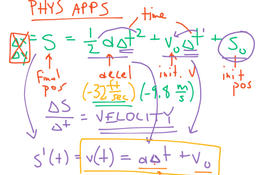 PHYS APPS
time
Δx = S = 1/2 aΔt² + v₀Δt¹ + S₀
final pos
accel
init. v
init pos
(-32 ft/sec) (-9.8 m/s)
ΔS/Δt = VELOCITY
s'(t) = v(t) = aΔt + v₀